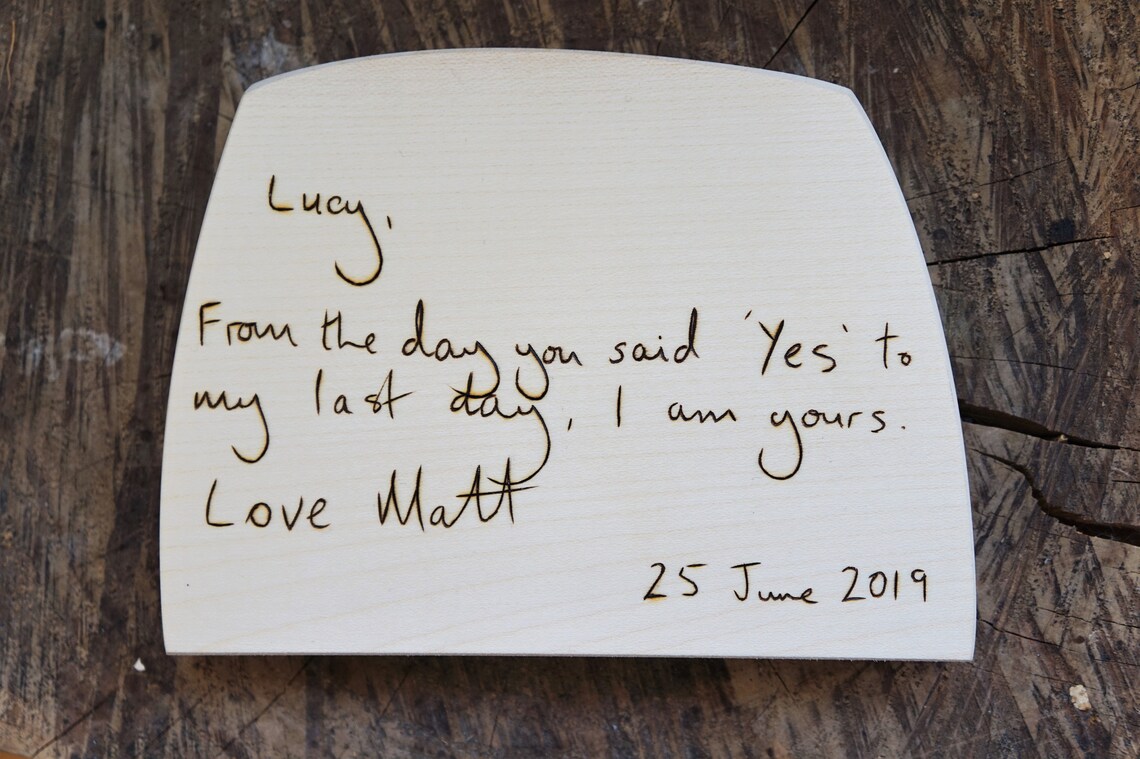 Lucy,
From the day you said 'Yes' to
my last day, I am yours.
Love Matt
25 June 2019